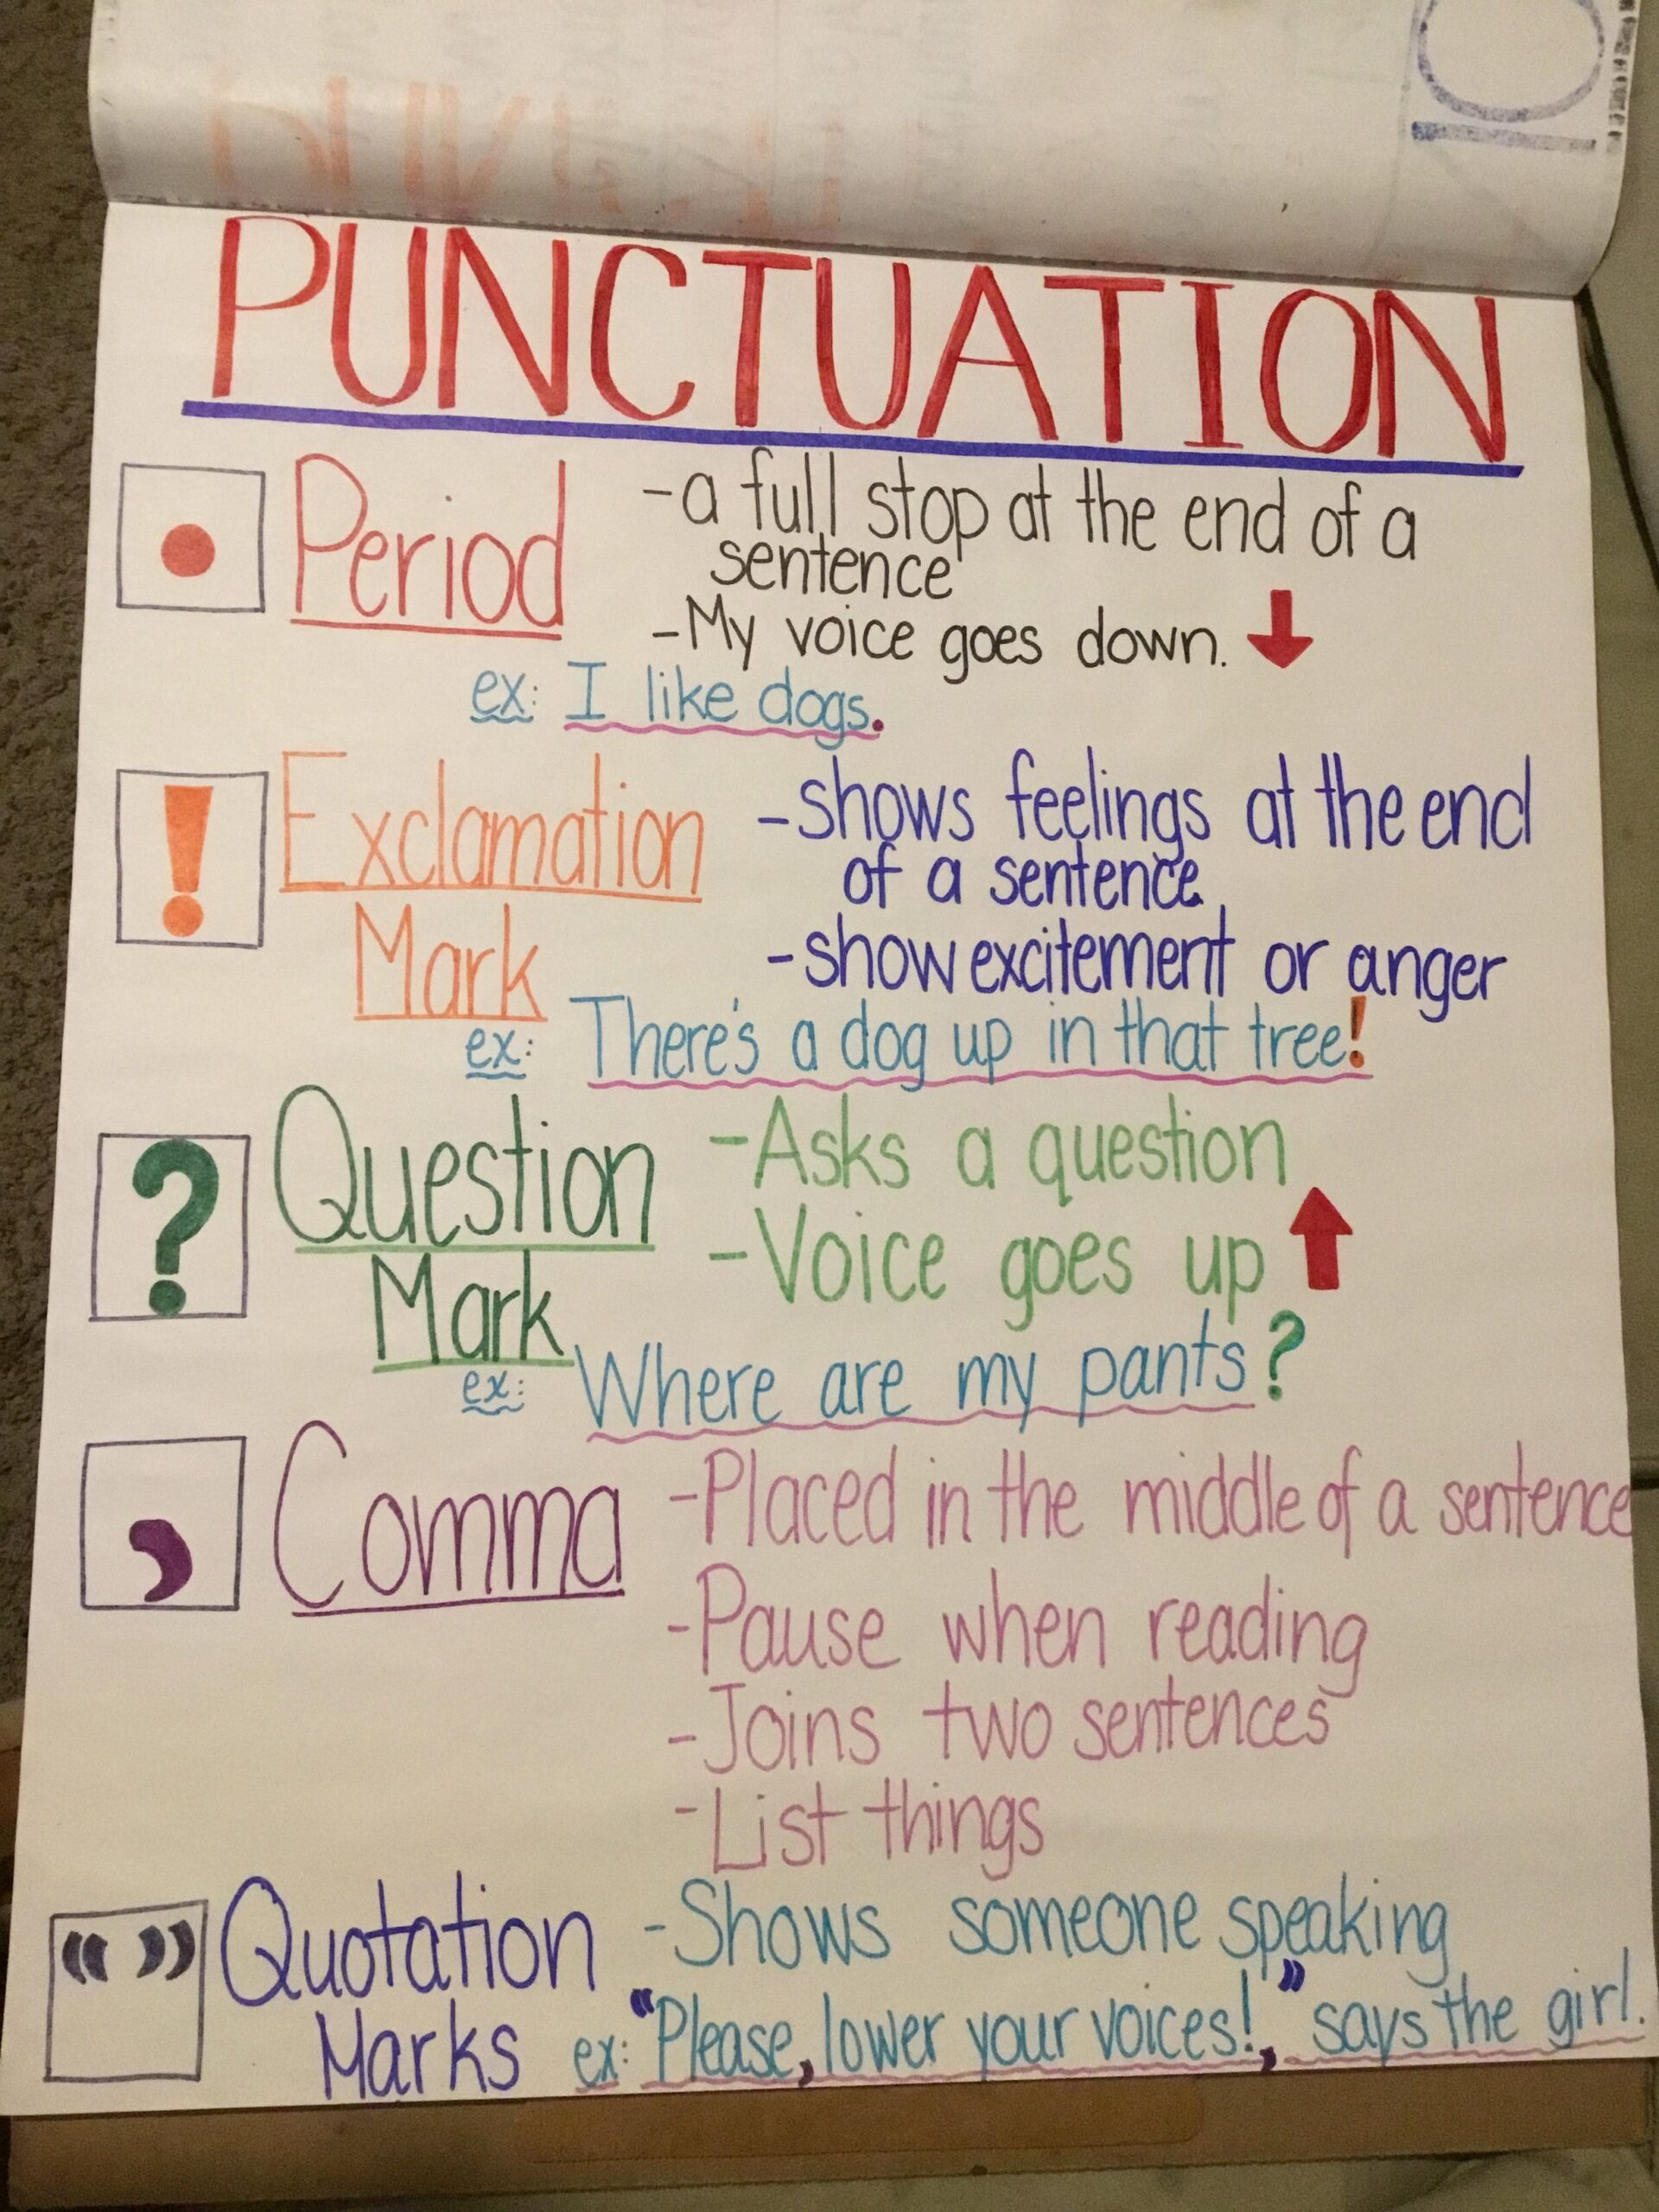 PUNCTUATION
. Period
-a full stop at the end of a
sentence
-My voice goes down.
ex: I like dogs.
! Exclamation
Mark
-shows feelings at the end
of a sentence.
-show excitement or anger
ex: There's a dog up in that tree!
? Question
Mark
-Asks a question
-Voice goes up
ex: Where are my pants?
, Comma
-Placed in the middle of a sentence
-Pause when reading
-Joins two sentences
-List things
“ ” Quotation
Marks
-Shows someone speaking
ex: “Please, lower your voices!,” says the girl.